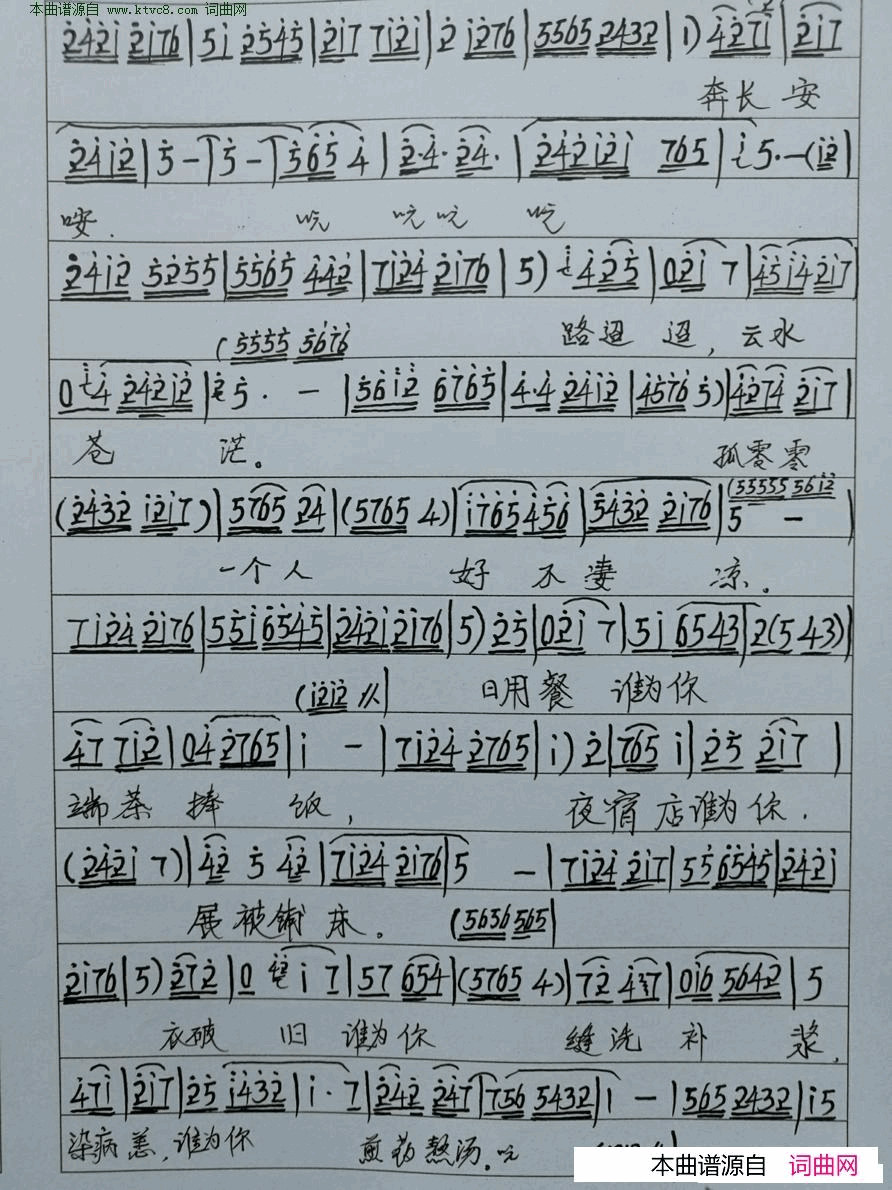 本曲谱源自
www.ktvc8.com 词曲网
2421 2176 | 51 2545 | 217 7121 | 2 1276 | 5565 2432 | 1) 4271 | 217
奔长安
2412 | 5 - | 5 - | 565 4 | 2·4· 24· | 242121 765 | 5·-(12 |
吰 吰吰 吰
2412 5255 | 5565 442 | 7124 2176 | 5) 425 | 021 7 | 4514217
(5555 5676
路迢迢，云水
0 4 24212 | 5· - | 5612 6765 | 4·4 2412 | 4576 5) | 4274 217 |
苍 茫。 孤零零
(2432 1217) | 5765 24 | (5765 4) | 1765456 | 5432 2176 | 5 - |
(55555 5612
一个人 好不凄凉。
7124 2176 | 5516545 | 24212176 | 5) 25 | 021 7 | 51 6543 | 2(5 43) |
(1212 〃|
日用餐 谁为你
47 712 | 04 2765 | 1 - | 7124 2765 | 1) 2 | 765 1 | 25 217 |
端茶捧饭， 夜宿店谁为你.
(2421 7) | 42 5 42 | 7124 2176 | 5 - | 7124 217 | 55 6545 | 2421
展被铺床。 (5656 565|
2176 | 5) 272 | 0 42 1 7 | 57 654 | (5765 4) | 72 437 | 016 5642 | 5
衣破旧谁为你 缝洗补浆，
471 | 217 | 25 1432 | 1· 7 | 242 247 | 756 5432 | 1 - | 565 2432 | 15
染病恙，谁为你 煎药熬汤。吰
本曲谱源自 词曲网